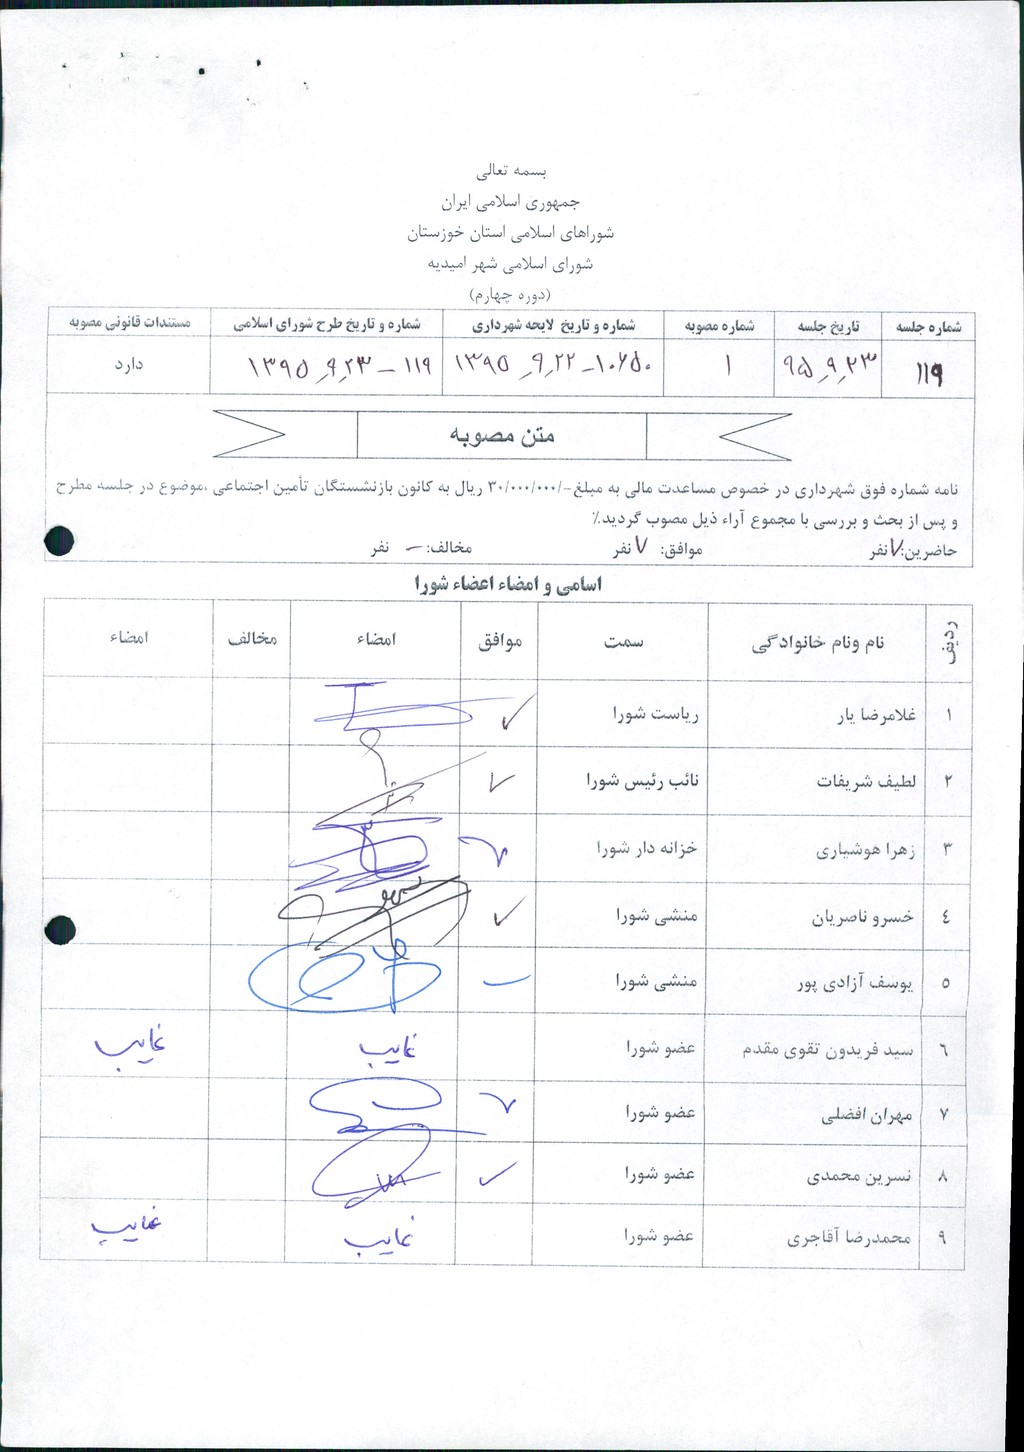 بسمه تعالی
جمهوری اسلامی ایران
شوراهای اسلامی استان خوزستان
شورای اسلامی شهر امیدیه
(دوره چهارم)
شماره جلسه تاریخ جلسه شماره مصوبه شماره و تاریخ لایحه شهرداری شماره و تاریخ طرح شورای اسلامی مستندات قانونی مصوبه
۱۱۹ ۹۵_۹_۲۳ ۱ ۱۰۶۵۰_۱۳۹۵_۹_۲۲ ۱۱۹_۱۳۹۵_۹_۲۳ دارد
متن مصوبه
نامه شماره فوق شهرداری در خصوص مساعدت مالی به مبلغ-/۳۰/۰۰۰/۰۰۰ ریال به کانون بازنشستگان تأمین اجتماعی ،موضوع در جلسه مطرح
و پس از بحث و بررسی با مجموع آراء ذیل مصوب گردید.٪
حاضرین:۷نفر موافق: ۷نفر مخالف: - نفر
اسامی و امضاء اعضاء شورا
ردیف نام ونام خانوادگی سمت موافق امضاء مخالف امضاء
۱ غلامرضا یار ریاست شورا ✓
۲ لطیف شریفات نائب رئیس شورا ✓
۳ زهرا هوشیاری خزانه دار شورا ✓
٤ خسرو ناصریان منشی شورا ✓
۵ یوسف آزادی پور منشی شورا
٦ سید فریدون تقوی مقدم عضو شورا غایب غایب
۷ مهران افضلی عضو شورا ✓
۸ نسرین محمدی عضو شورا ✓
۹ محمدرضا آقاجری عضو شورا غایب غایب